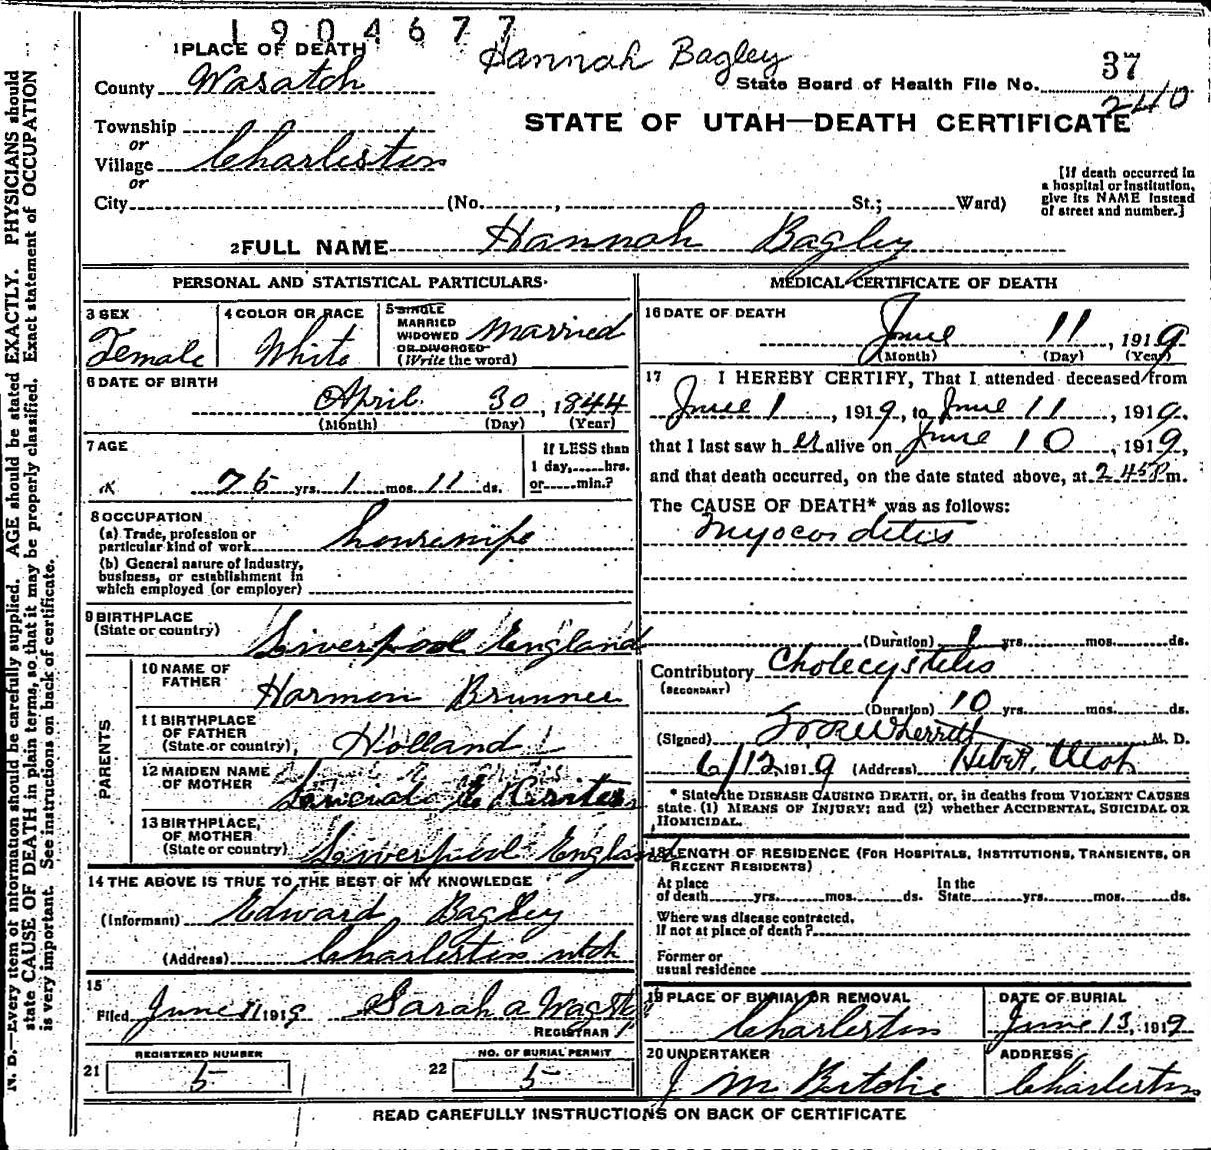 1904677
Hannah Bagley
1 PLACE OF DEATH
County Wasatch
State Board of Health File No. 37
240
STATE OF UTAH—DEATH CERTIFICATE
Township
or
Village Charleston
or
City (No. , St.; Ward)
[If death occurred in
a hospital or institution,
give its NAME instead
of street and number.]
2 FULL NAME Hannah Bagley
PERSONAL AND STATISTICAL PARTICULARS
3 SEX
Female
4 COLOR OR RACE
White
5 SINGLE
MARRIED
WIDOWED
OR DIVORCED
(Write the word)
Married
6 DATE OF BIRTH
April 30, 1844
(Month) (Day) (Year)
7 AGE
75 yrs. 1 mos. 11 ds.
If LESS than
1 day, hrs.
or min.?
8 OCCUPATION
(a) Trade, profession or
particular kind of work housewife
(b) General nature of industry,
business, or establishment in
which employed (or employer)
9 BIRTHPLACE
(State or country) Liverpool England
PARENTS
10 NAME OF
FATHER Harmon
11 BIRTHPLACE
OF FATHER
(State or country) Holland
12 MAIDEN NAME
OF MOTHER
13 BIRTHPLACE
OF MOTHER
(State or country) Liverpool England
14 THE ABOVE IS TRUE TO THE BEST OF MY KNOWLEDGE
(Informant) Edward Bagley
(Address) Charleston utah
15
Filed June 11 1919 Sarah a
REGISTRAR
REGISTERED NUMBER
21 5
NO. OF BURIAL PERMIT
22 5
MEDICAL CERTIFICATE OF DEATH
16 DATE OF DEATH
June 11, 1919
(Month) (Day) (Year)
17 I HEREBY CERTIFY, That I attended deceased from
June 1, 1919, to June 11, 1919,
that I last saw her alive on June 10, 1919,
and that death occurred, on the date stated above, at 2 45 P m.
The CAUSE OF DEATH* was as follows:
Myocarditis
(Duration) 1 yrs. mos. ds.
Contributory Cholecystitis
(SECONDARY)
(Duration) 10 yrs. mos. ds.
(Signed) Wherritt M. D.
6/12, 1919 (Address) Heber, Utah
* State the DISEASE CAUSING DEATH, or, in deaths from VIOLENT CAUSES
state (1) MEANS OF INJURY; and (2) whether ACCIDENTAL, SUICIDAL OR
HOMICIDAL.
18 LENGTH OF RESIDENCE (FOR HOSPITALS, INSTITUTIONS, TRANSIENTS, OR
RECENT RESIDENTS)
At place
of death yrs. mos. ds.
In the
State yrs. mos. ds.
Where was disease contracted,
If not at place of death?
Former or
usual residence
19 PLACE OF BURIAL OR REMOVAL
Charleston
DATE OF BURIAL
June 13, 1919
20 UNDERTAKER
J M Ritchie
ADDRESS
Charleston
READ CAREFULLY INSTRUCTIONS ON BACK OF CERTIFICATE
N. B.—Every item of information should be carefully supplied. AGE should be stated EXACTLY. PHYSICIANS should
state CAUSE OF DEATH in plain terms, so that it may be properly classified. Exact statement of OCCUPATION
is very important. See instructions on back of certificate.